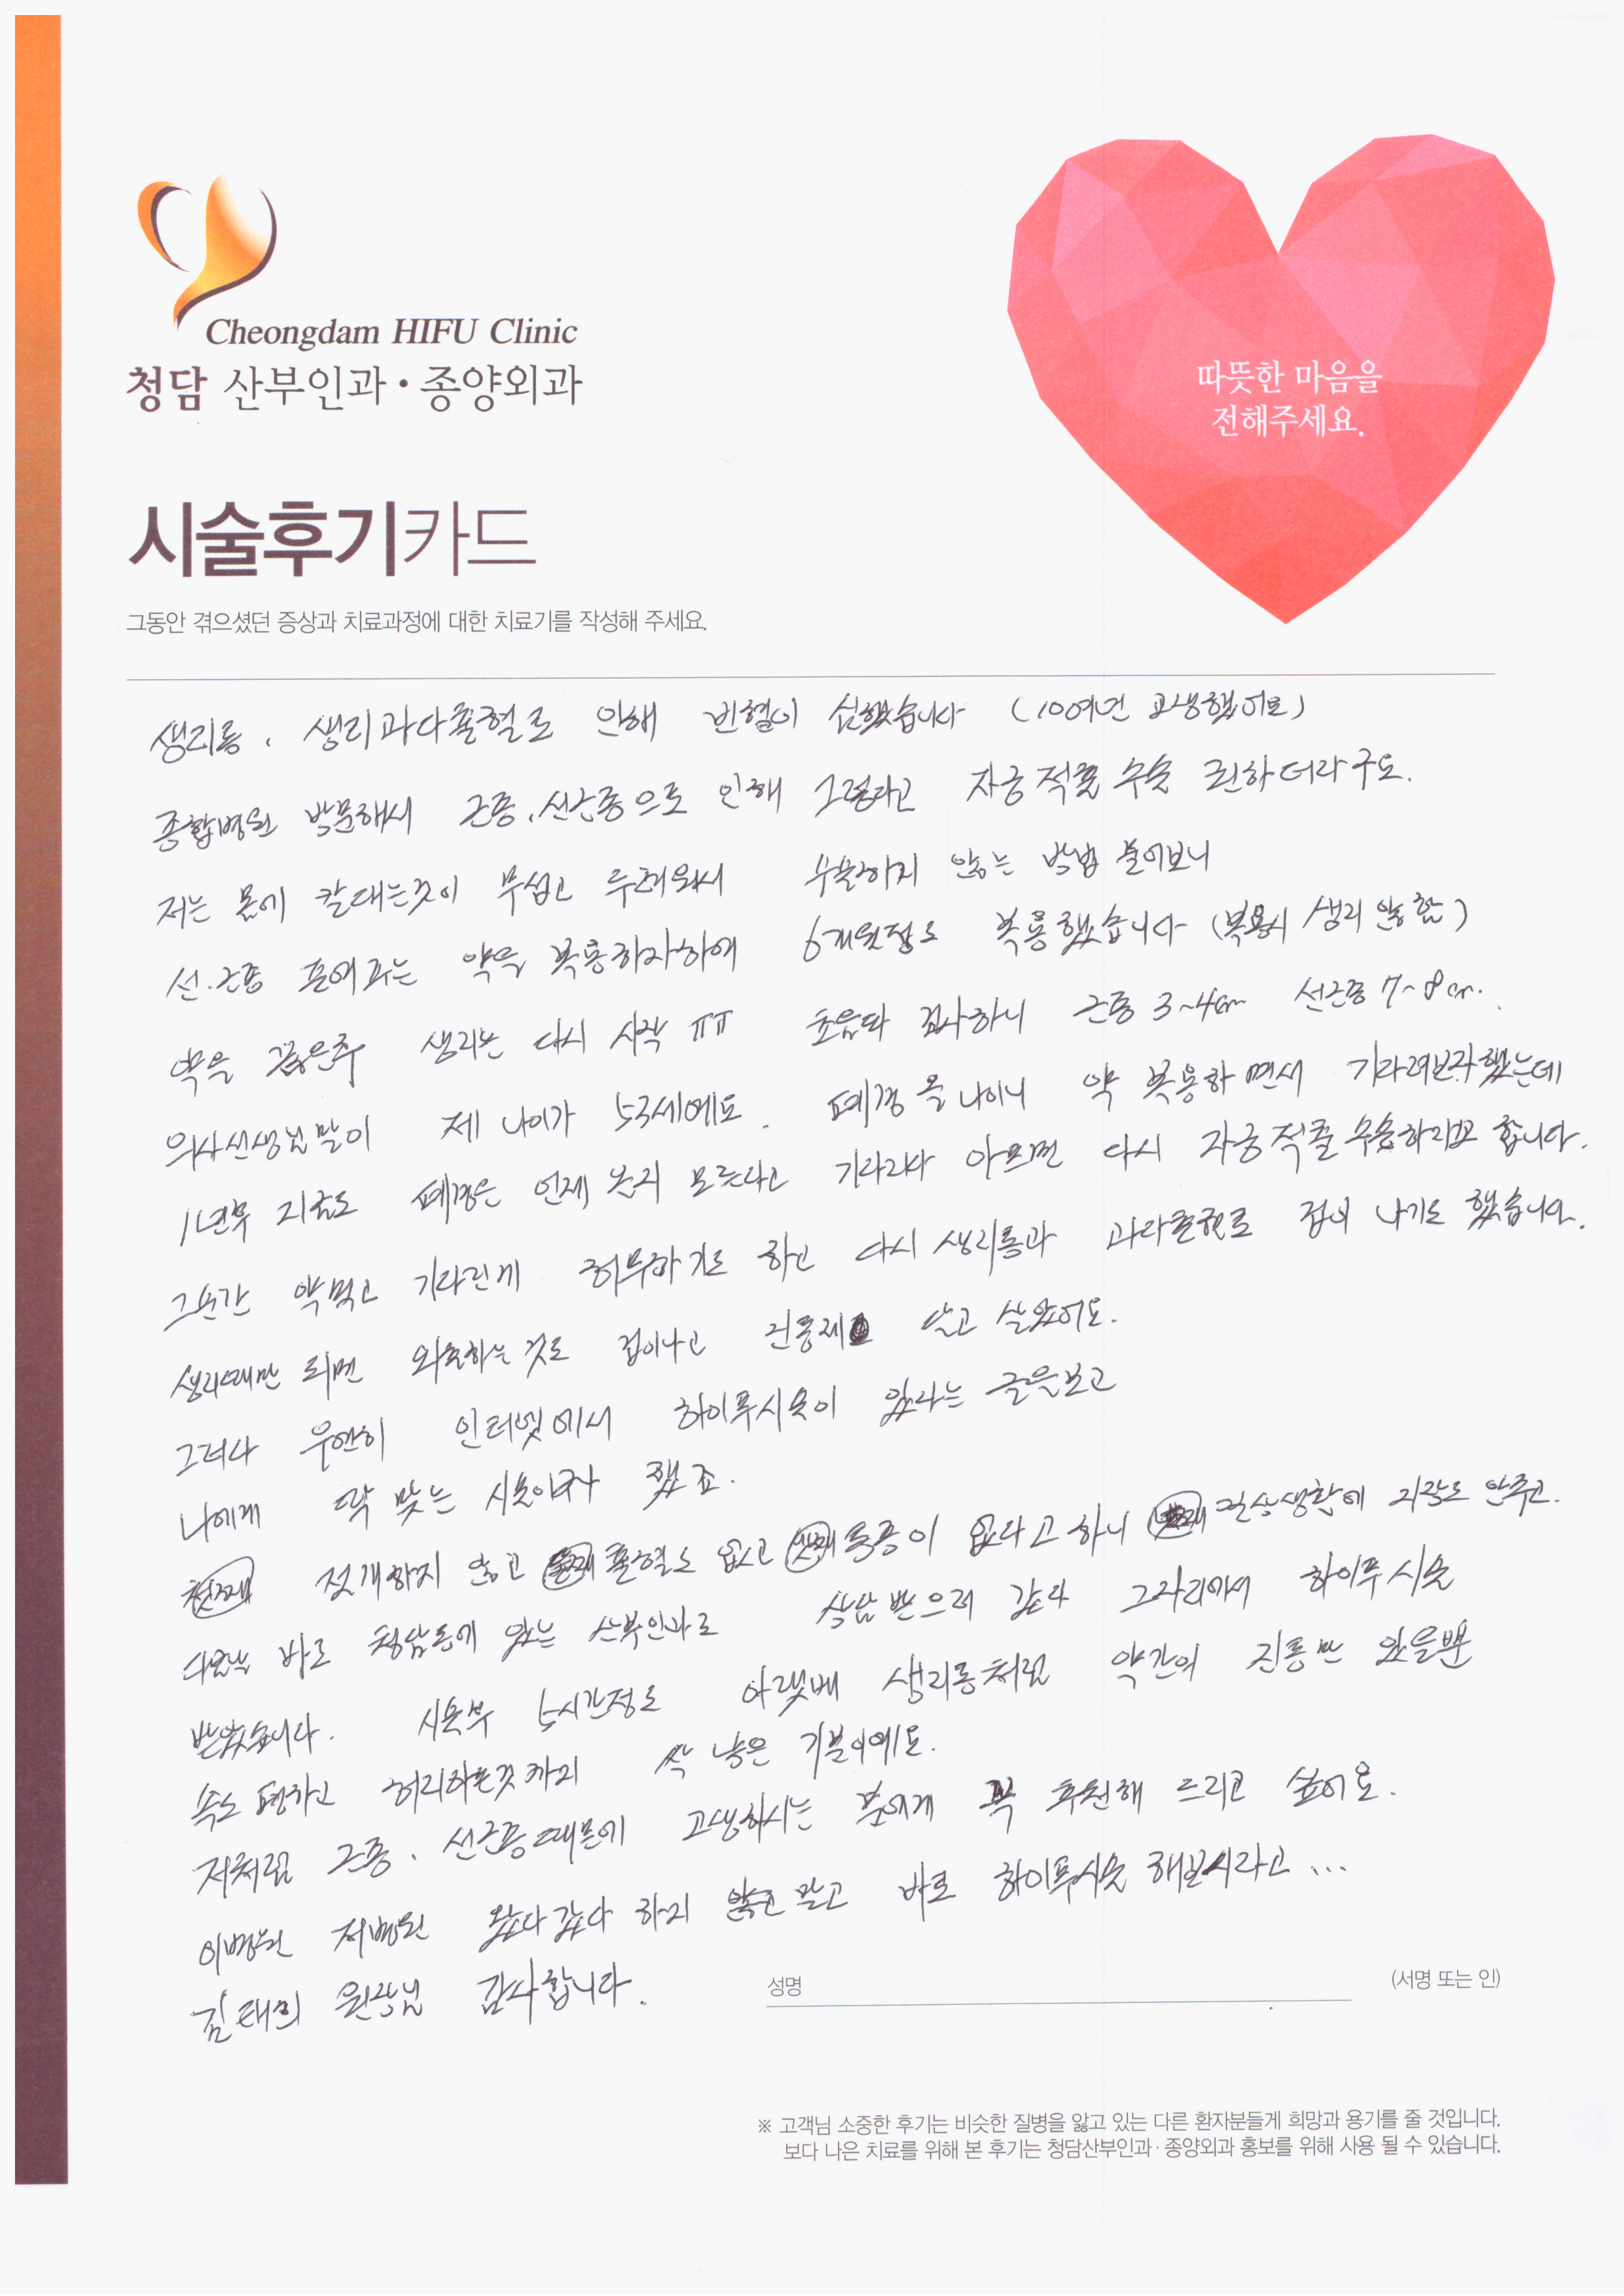 Cheongdam HIFU Clinic
청담 산부인과·종양외과
따뜻한 마음을
전해주세요.
시술후기카드
그동안 겪으셨던 증상과 치료과정에 대한 치료기를 작성해 주세요.
생리통, 생리과다출혈로 인해 빈혈이 심했습니다 (10여년 고생했어요)
종합병원 방문해서 근종, 선근종으로 인해 그렇다고 자궁적출 수술 권하더라구요.
저는 몸에 칼대는것이 무섭고 두려워서 수술하지 않는 방법 물어보니
선.근종 줄여주는 약을 복용하자하여 6개월정도 복용했습니다 (복용시 생리 않함)
약을 끊은후 생리는 다시 시작 ㅠㅠ 초음파 검사하니 근종 3~4cm 선근종 7~8cm.
의사선생님말이 제 나이가 53세예요. 폐경 올 나이니 약 복용하면서 기다려보자했는데
1년후 지금도 폐경은 언제 올지 모른다고 기다리다 아프면 다시 자궁적출수술하라고 합니다.
그순간 약먹고 기다린게 허무하기도 하고 다시 생리통과 과다출혈로 겁이 나기도 했습니다.
생리때만 되면 외출하는 것도 겁이나고 진통제 달고 살았어요.
그러다 우연히 인터넷에서 하이푸시술이 있다는 글을보고
나에게 딱 맞는 시술이다 했죠.
첫째 절개하지 않고 둘째 출혈도 없고 셋째 통증이 없다고 하니 넷째 일상생활에 지장도 안주고.
다음날 바로 청담동에 있는 산부인과로 상담 받으러 갔다 그자리에서 하이푸 시술
받았습니다. 시술후 5시간정도 아랫배 생리통처럼 약간의 진통만 있을뿐
속도 편하고 허리아픈것까지 싹 낳은 기분이예요.
저처럼 근종, 선근종때문에 고생하시는 분에게 꼭 추천해 드리고 싶어요.
이병원 저병원 왔다갔다 하지 말고 바로 하이푸시술 해보시라고...
김태희 원장님 감사합니다.
성명
(서명 또는 인)
※ 고객님 소중한 후기는 비슷한 질병을 앓고 있는 다른 환자분들게 희망과 용기를 줄 것입니다.
보다 나은 치료를 위해 본 후기는 청담산부인과·종양외과 홍보를 위해 사용 될 수 있습니다.